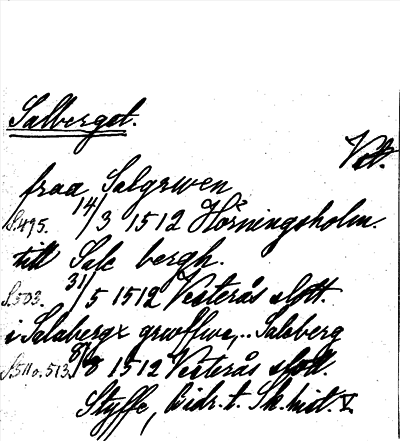 Salberget.
Vstt.
fraa Salgrwen
S.495. 14/3 1512 Hörningsholm.
till Sale bergh.
S.503. 31/5 1512 Vesterås slott.
i Salabergx grwffwe, .. Salsberg
S.511 o. 513. 8/8 1512 Vesterås slott.
Styffe, Bidr. t. Sk. hist. V.